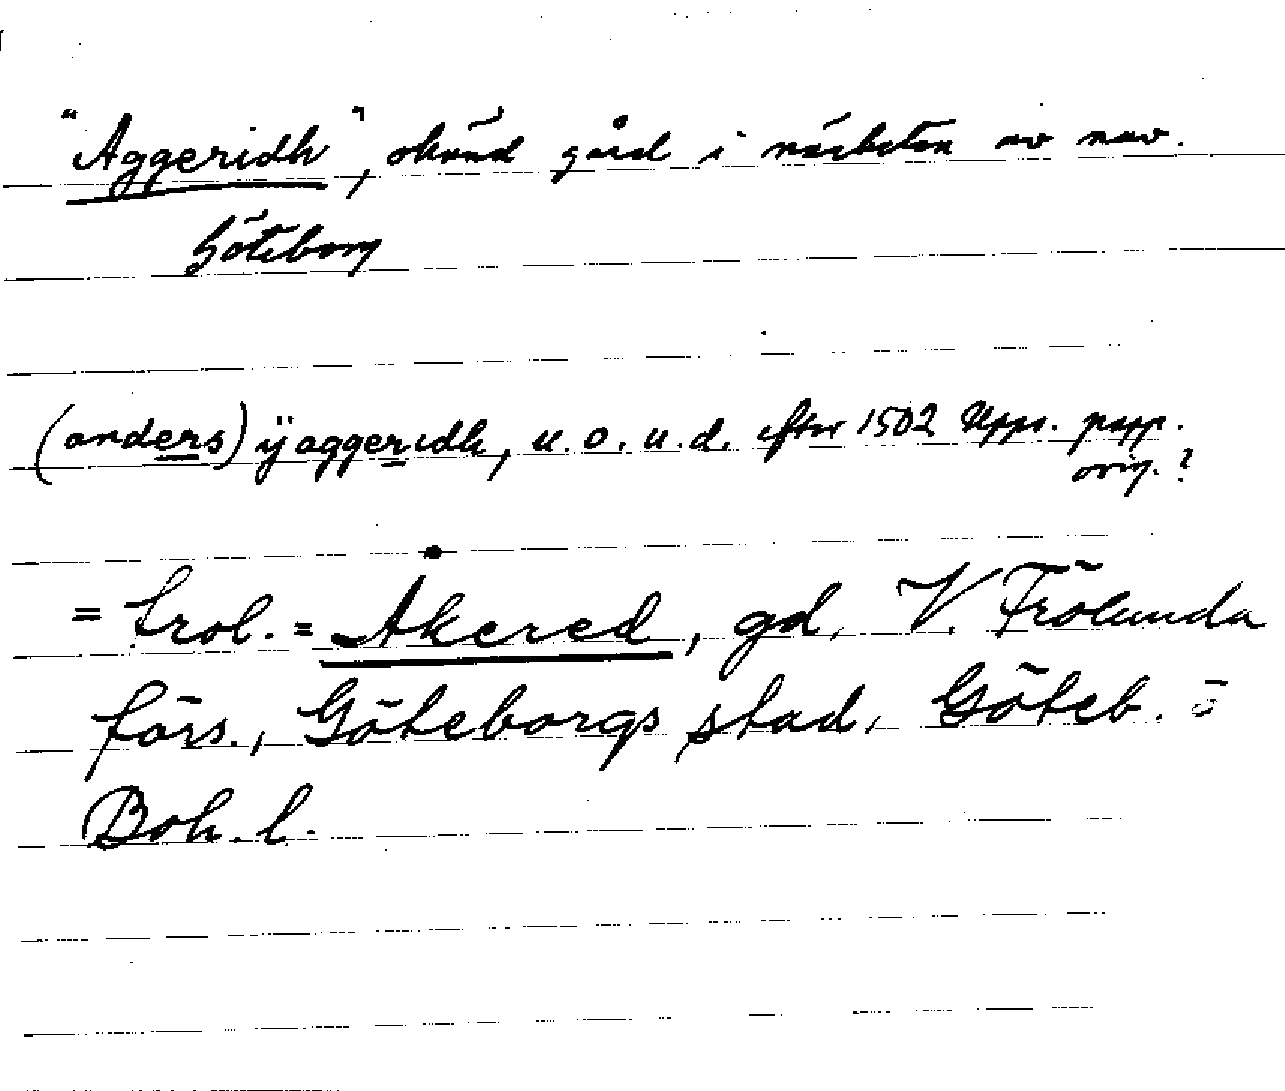 "Aggeridh", okänd gård i närheten av nuv.
Göteborg
(anders) ÿ aggeridh, u.o.u.d. efter 1502 Upps. papp.
orig.?
= trol. = Åkered, gd, V. Frölunda
förs., Göteborgs stad, Göteb. o
Boh. l.